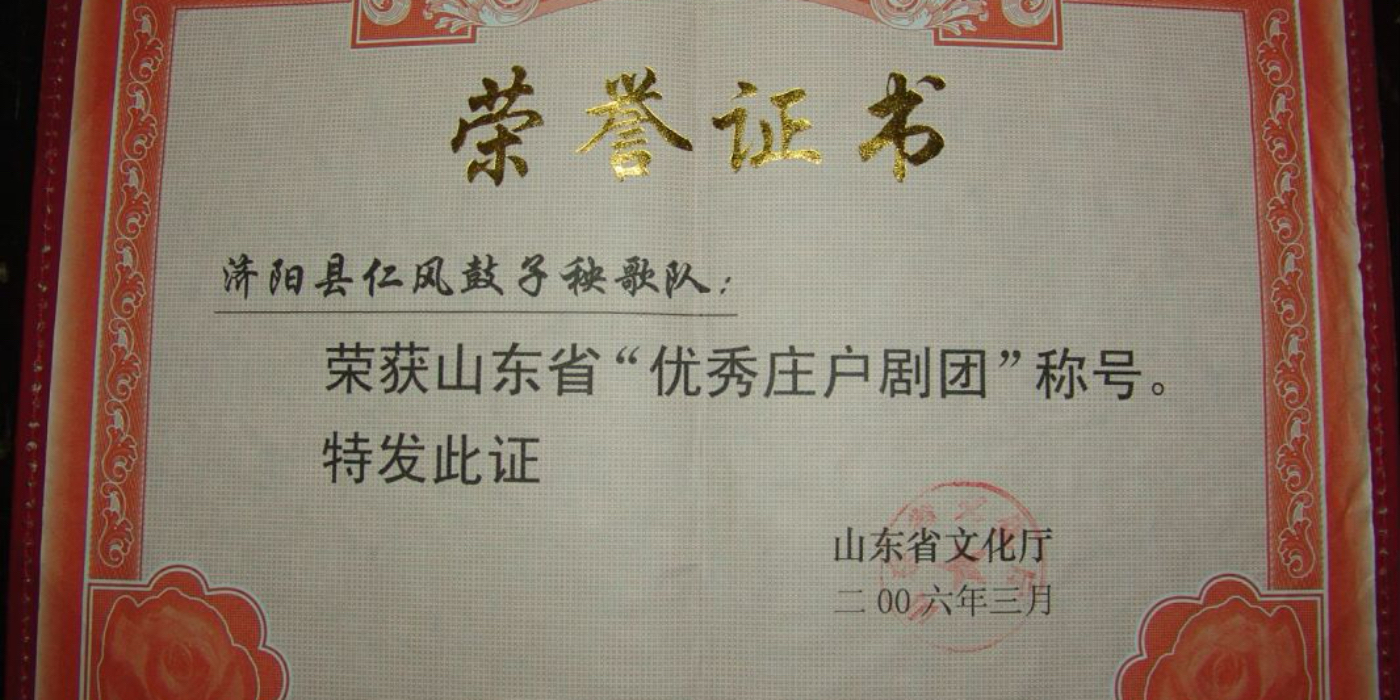 荣誉证书
济阳县仁风鼓子秧歌队：
荣获山东省“优秀庄户剧团”称号。
特发此证
山东省文化厅
二00六年三月